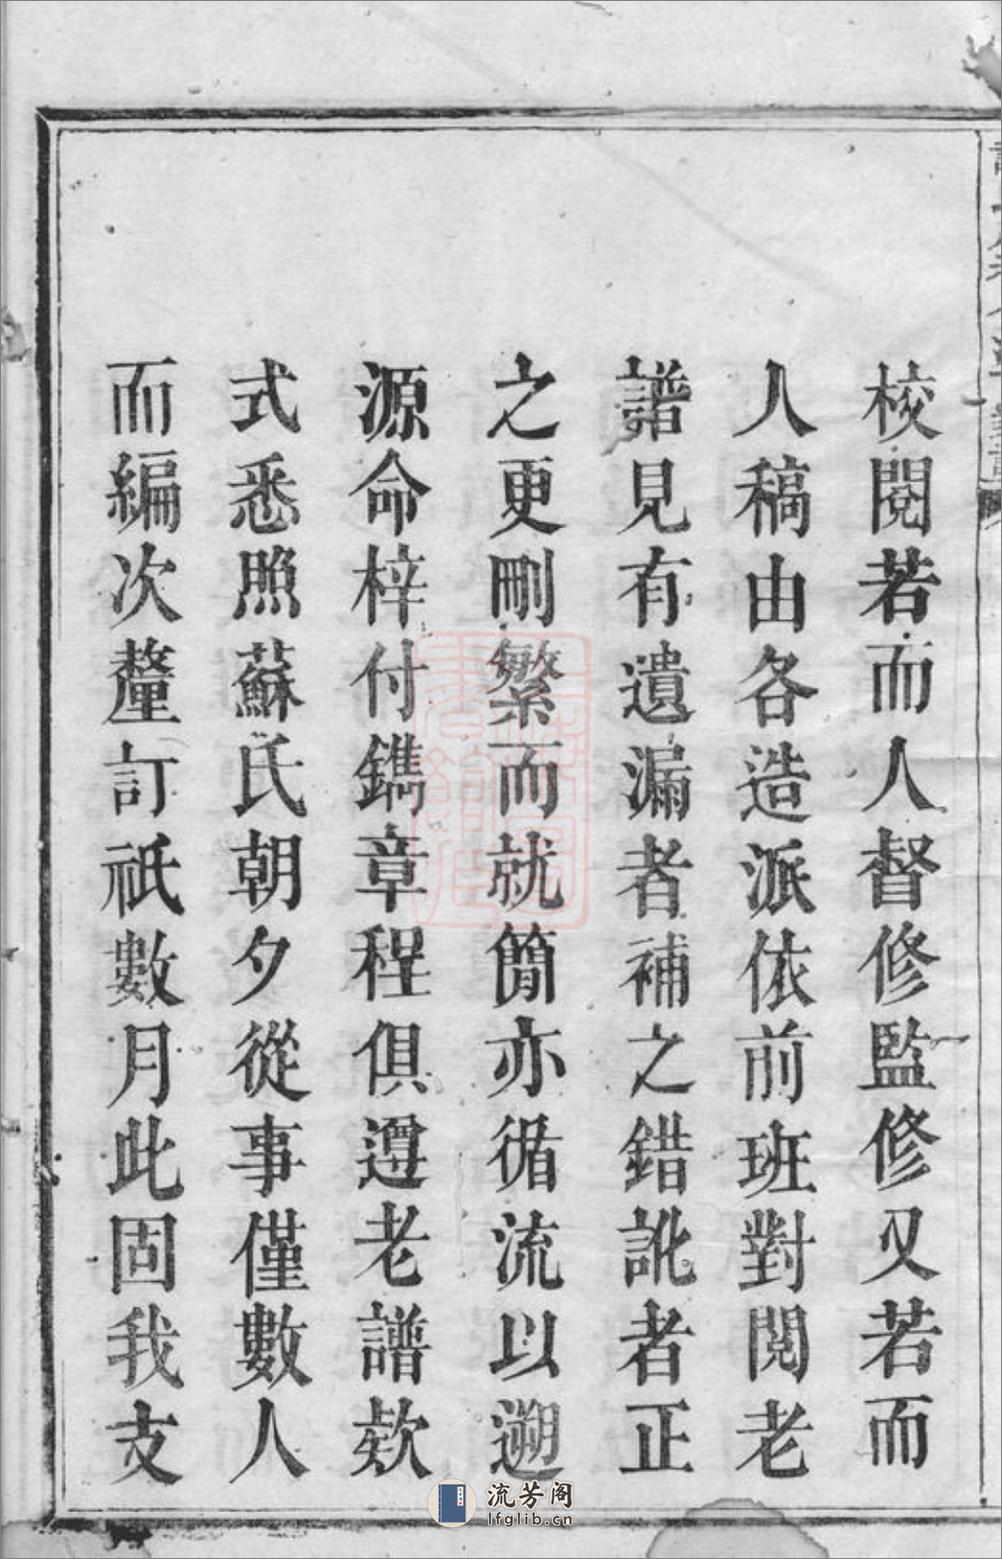 校閱若而人督修監修又若而
人稿由各造派依前班對閱老
譜見有遺漏者補之錯訛者正
之更刪繁而就簡亦循流以遡
源命梓付鐫章程俱遵老譜欵
式悉照蘇氏朝夕從事僅數人
而編次釐訂祇數月此固我支
流芳阁
lfglib.cn